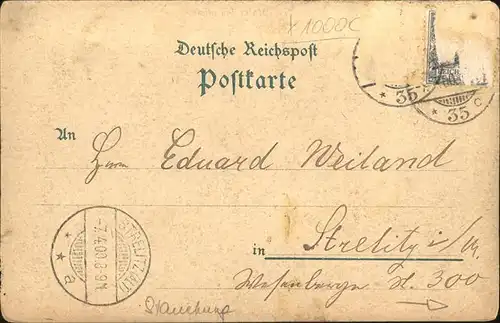 x 1000C
Deutsche Reichspost
Postkarte
35
35 c
An
Herrn Eduard Weiland
in Strelitz i/M.
Wesenberger St. 300
STRELITZ (ALT)
7.4.00.8-9V.
a
Stauchung